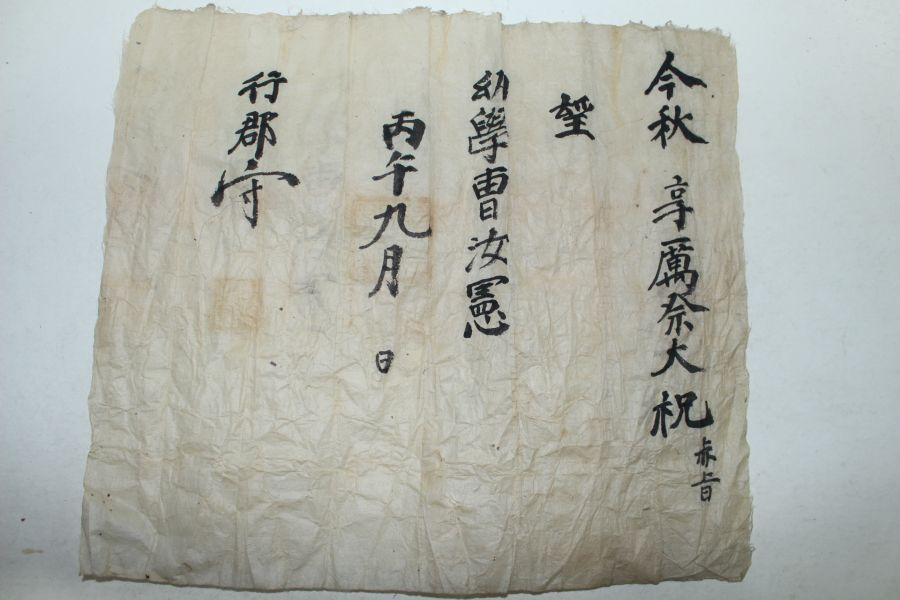 今秋 享厲祭大祝
赤旨
望
幼學曺汝憲
丙午九月 日
行郡守